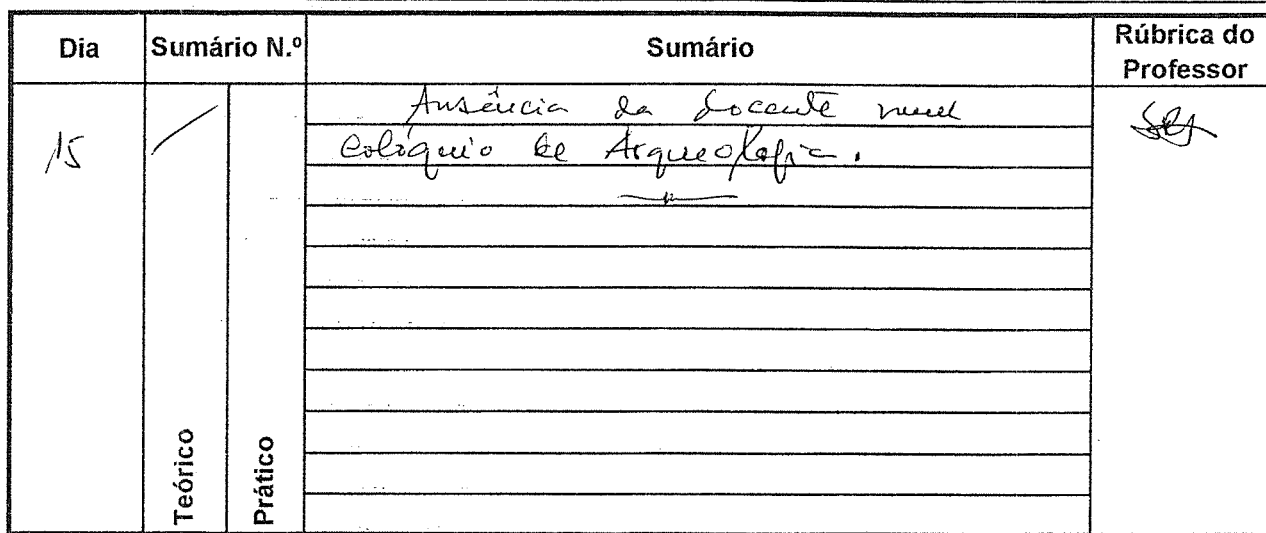 Dia Sumário N.º Sumário Rúbrica do Professor
15 Ausência da docente num
Colóquio de Arqueologia.
Teórico Prático